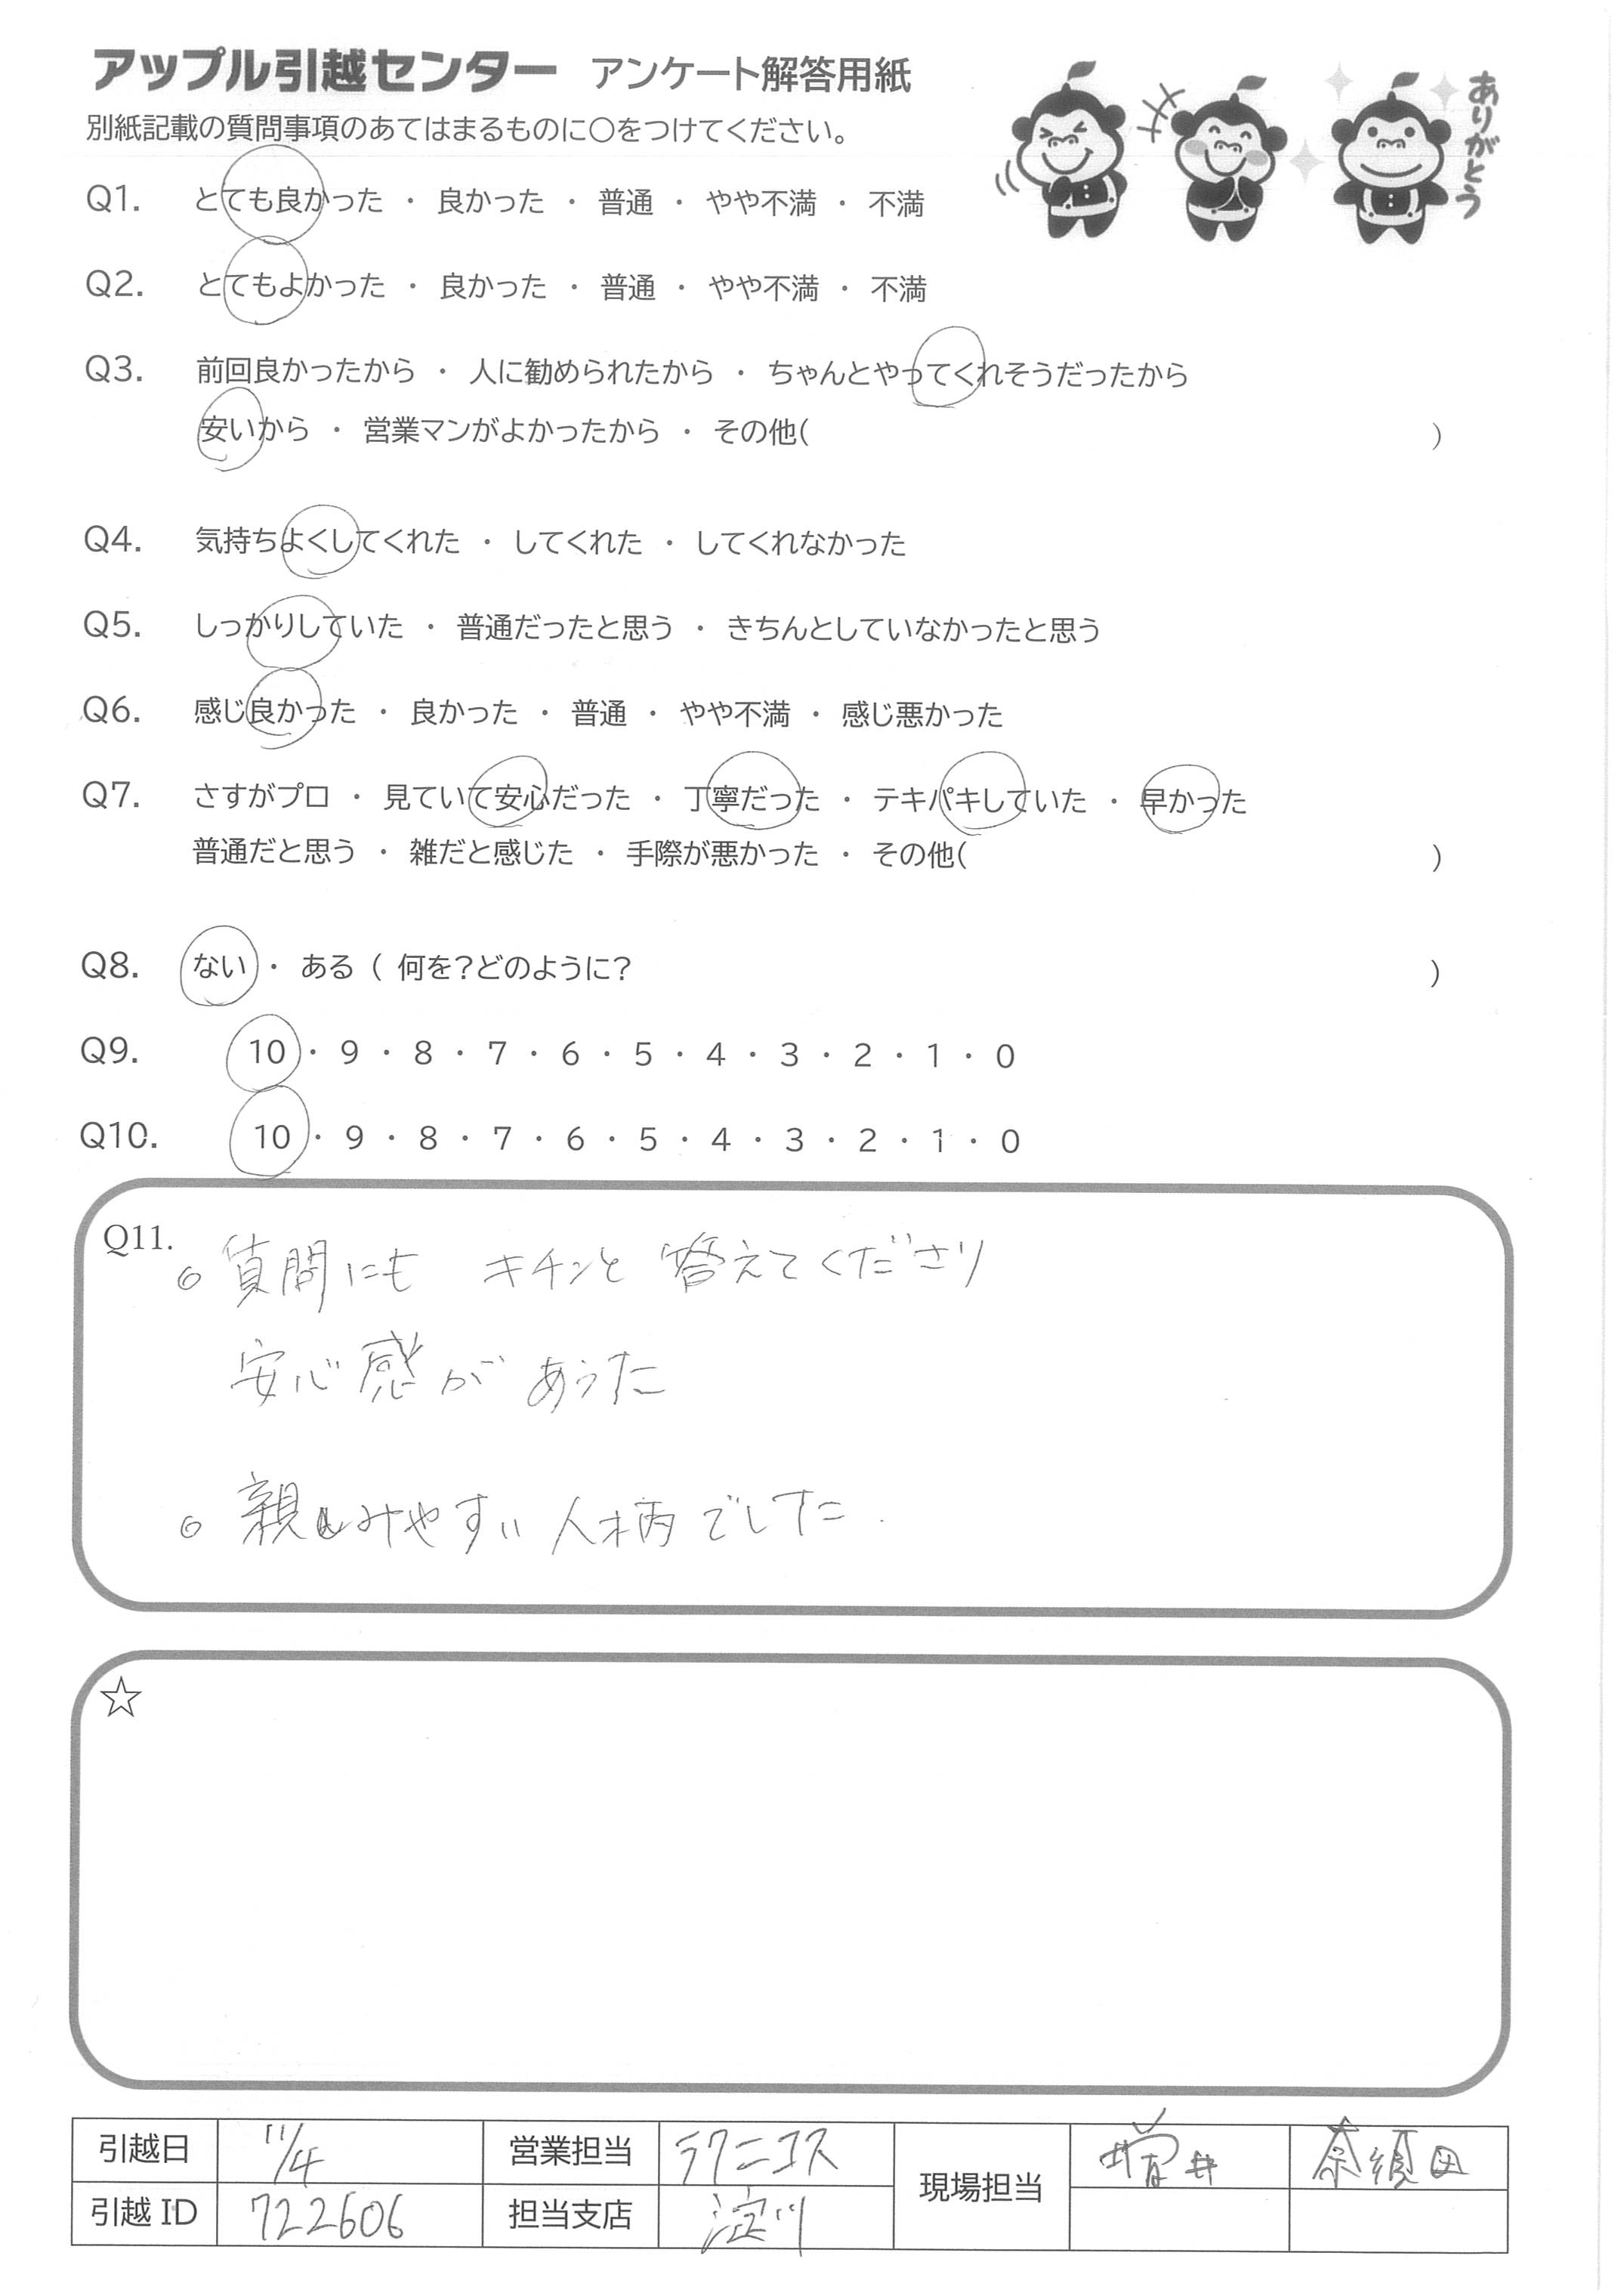 アップル引越センター アンケート解答用紙
ありがとう
別紙記載の質問事項のあてはまるものに○をつけてください。
Q1. とても良かった ・ 良かった ・ 普通 ・ やや不満 ・ 不満
Q2. とてもよかった ・ 良かった ・ 普通 ・ やや不満 ・ 不満
Q3. 前回良かったから ・ 人に勧められたから ・ ちゃんとやってくれそうだったから
安いから ・ 営業マンがよかったから ・ その他( )
Q4. 気持ちよくしてくれた ・ してくれた ・ してくれなかった
Q5. しっかりしていた ・ 普通だったと思う ・ きちんとしていなかったと思う
Q6. 感じ良かった ・ 良かった ・ 普通 ・ やや不満 ・ 感じ悪かった
Q7. さすがプロ ・ 見ていて安心だった ・ 丁寧だった ・ テキパキしていた ・ 早かった
普通だと思う ・ 雑だと感じた ・ 手際が悪かった ・ その他( )
Q8. ない ・ ある ( 何を?どのように? )
Q9. 10 ・ 9 ・ 8 ・ 7 ・ 6 ・ 5 ・ 4 ・ 3 ・ 2 ・ 1 ・ 0
Q10. 10 ・ 9 ・ 8 ・ 7 ・ 6 ・ 5 ・ 4 ・ 3 ・ 2 ・ 1 ・ 0
Q11.
○ 質問にも キチンと 答えてくださり
安心感が あった
○ 親しみやすい 人柄でした.
☆
引越日 11/4 営業担当 ラクニコス 現場担当 増井 奈須田
引越ID 722606 担当支店 淀川